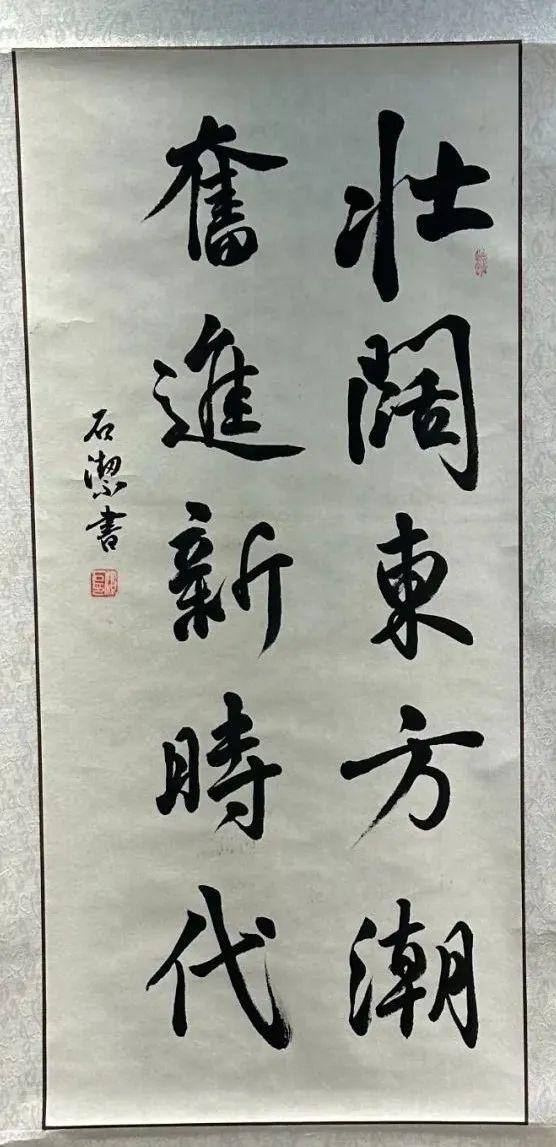 壯闊東方潮
奮進新時代
石潔書